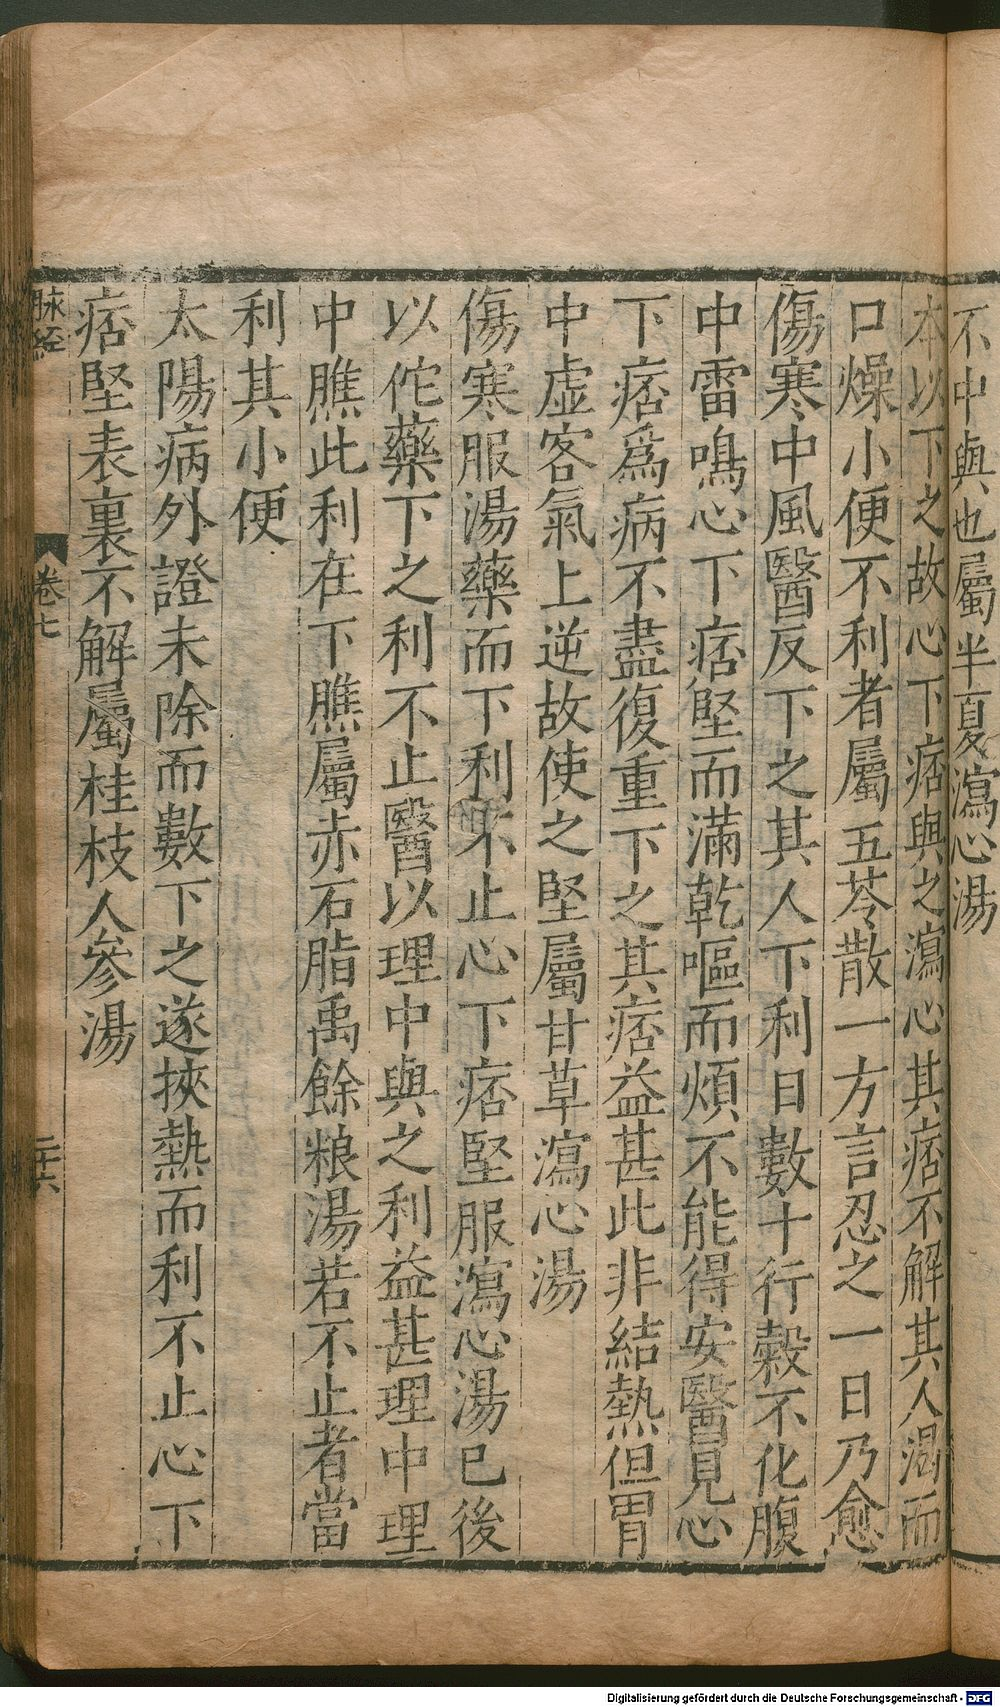 不中與也屬半夏瀉心湯
本以下之故心下痞與之瀉心其痞不解其人渴而
口燥小便不利者屬五苓散一方言忍之一日乃愈
傷寒中風醫反下之其人下利日數十行穀不化腹
中雷鳴心下痞堅而滿乾嘔而煩不能得安醫見心
下痞爲病不盡復重下之其痞益甚此非結熱但胃
中虛客氣上逆故使之堅屬甘草瀉心湯
傷寒服湯藥而下利不止心下痞堅服瀉心湯已後
以佗藥下之利不止醫以理中與之利益甚理中理
中膲此利在下膲屬赤石脂禹餘粮湯若不止者當
利其小便
太陽病外證未除而數下之遂挾熱而利不止心下
痞堅表裏不解屬桂枝人參湯
脉經
卷七
二十六
Digitalisierung gefördert durch die Deutsche Forschungsgemeinschaft - DFG